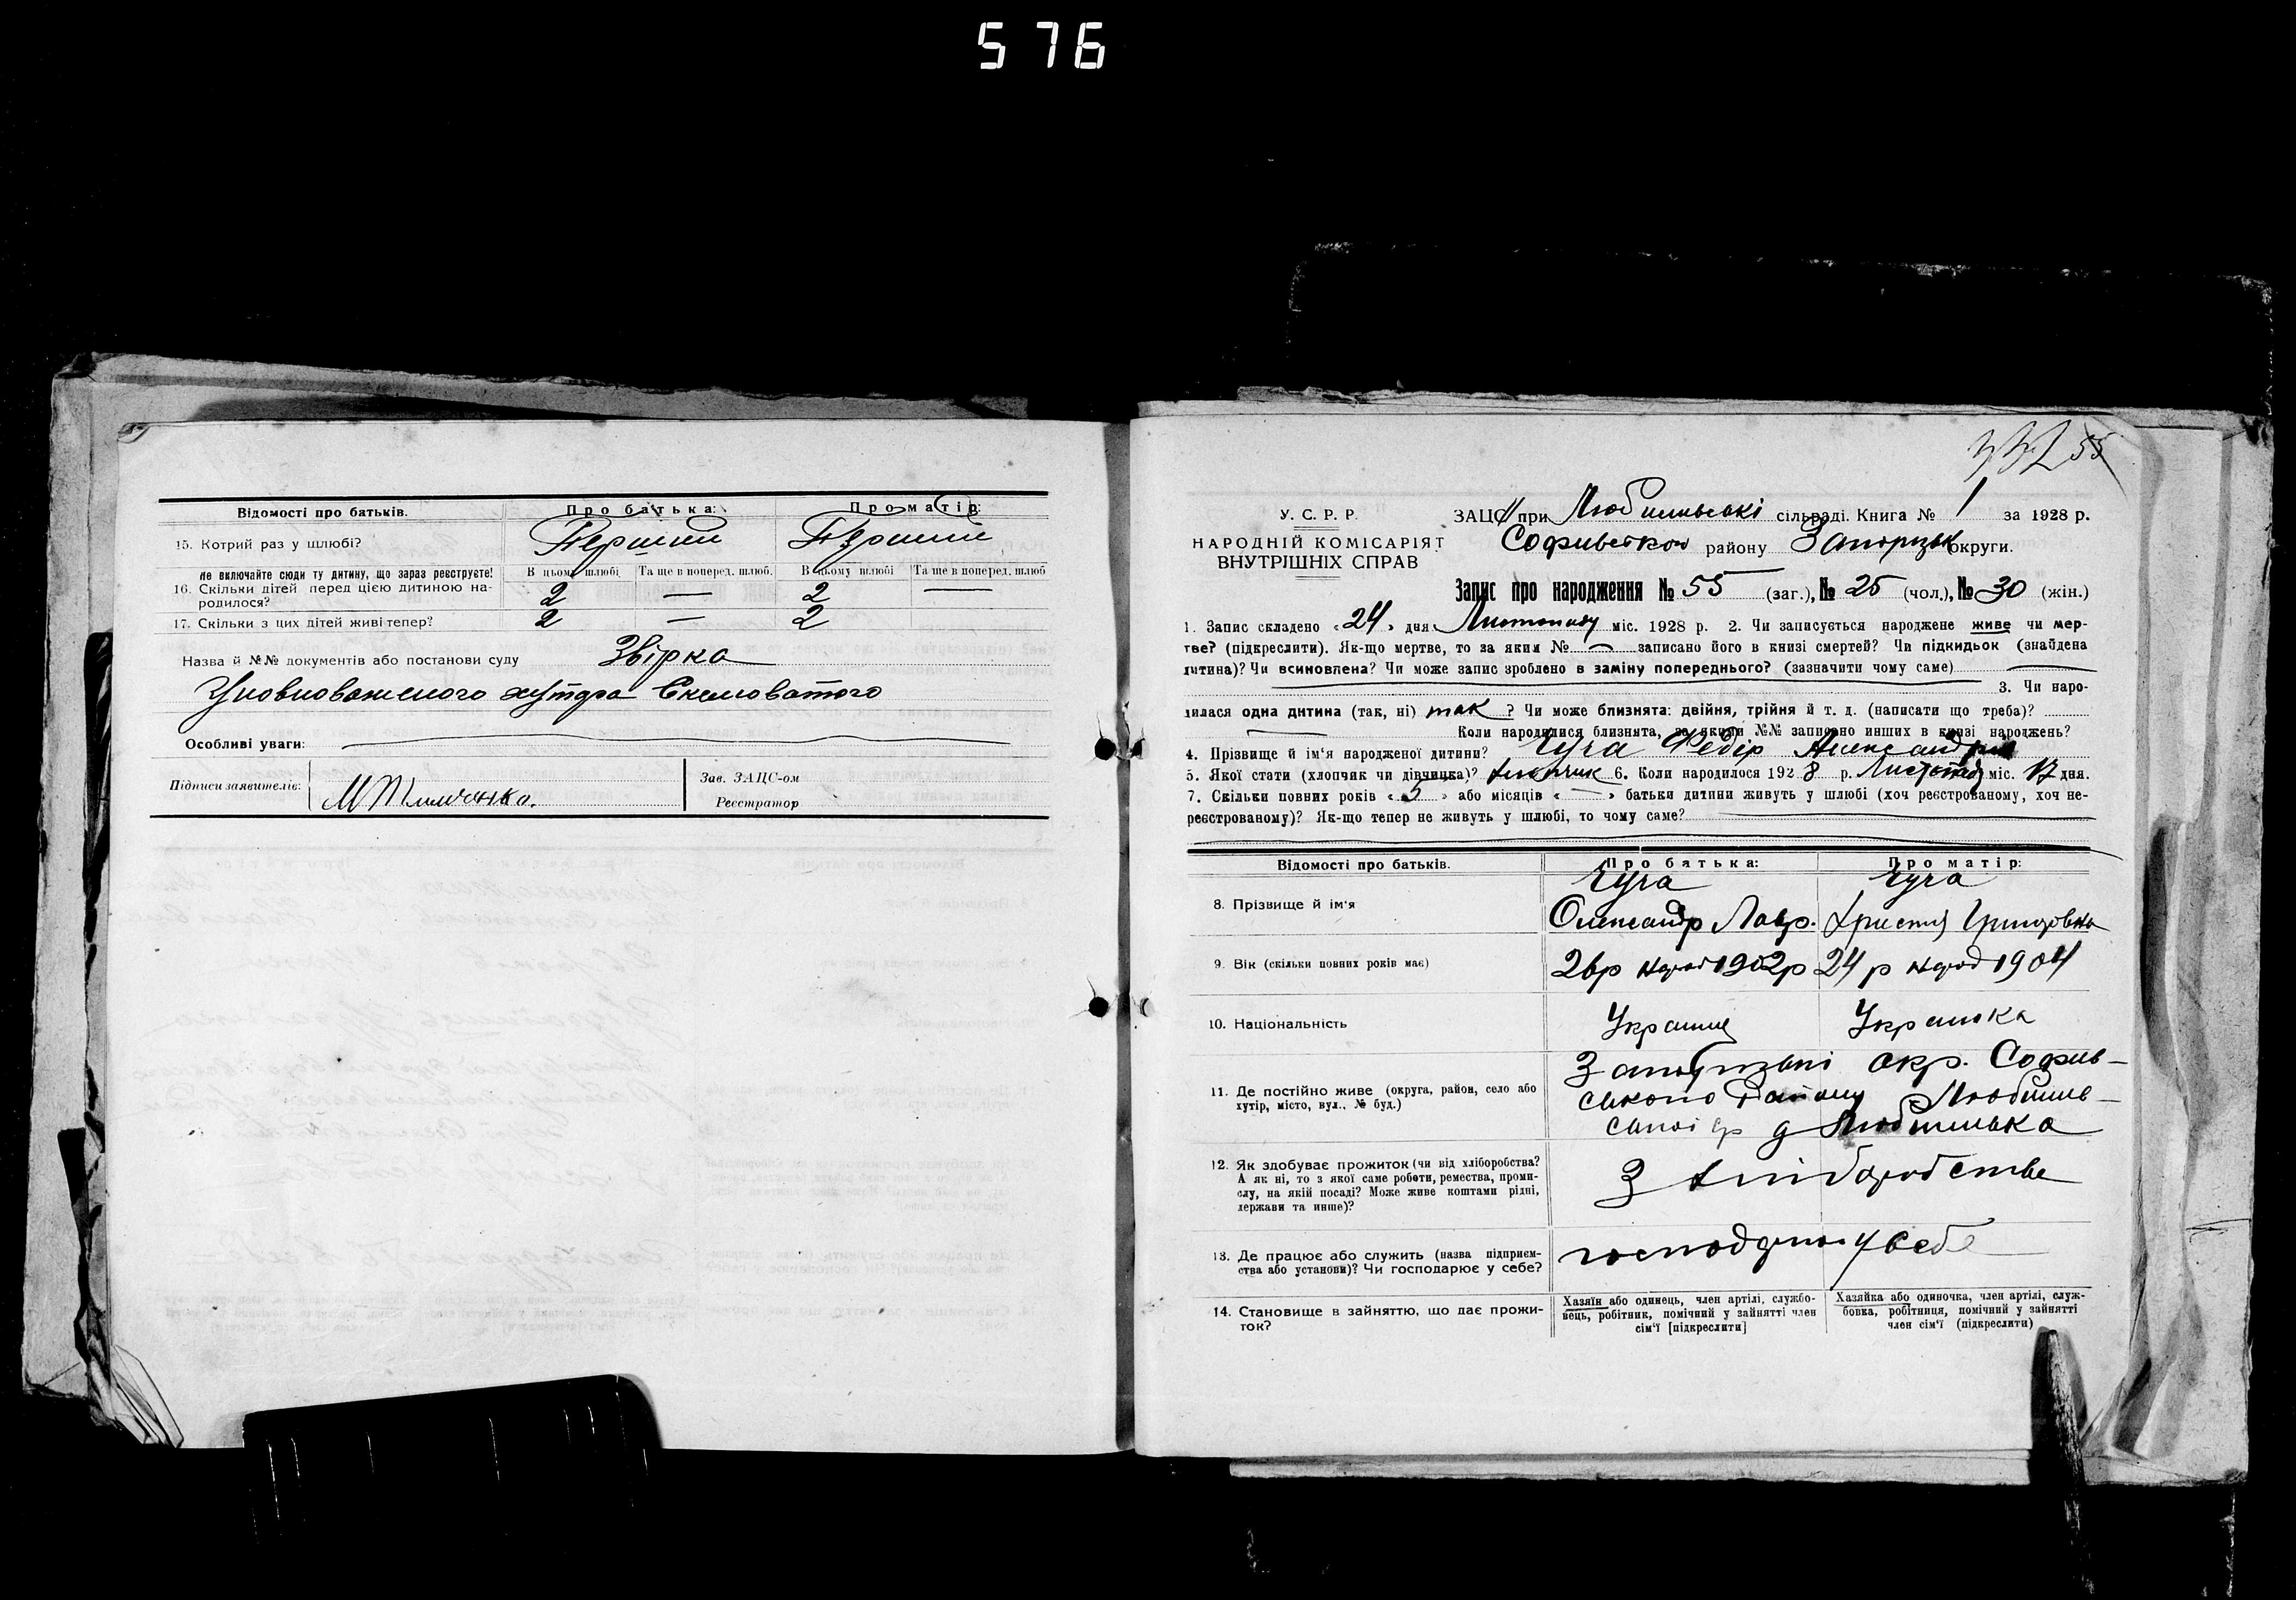 576
Відомості про батьків. Про батька: Про матір:
15. Котрий раз у шлюбі? Перший Перший
Не включайте сюди ту дитину, що зараз реєструєте! В цьому шлюбі Та ще в поперед. шлюб. В цьому шлюбі Та ще в поперед. шлюб
16. Скільки дітей перед цією дитиною на- 2 — 2 —
родилося?
17. Скільки з цих дітей живі тепер? 2 — 2
Назва й №№ документів або постанови суду Звірка
Уповноваженого хутора Скелеватого
Особливі уваги:
Підписи заявителів: М Тимченко. Зав. ЗАЦС-ом
Реєстратор
55
У. С. Р. Р.
НАРОДНІЙ КОМІСАРІЯТ
ВНУТРІШНІХ СПРАВ
ЗАЦС при Любимівські сільраді. Книга № 1 за 1928 р.
Софиевском району Запорізьк округи.
Запис про народження № 55 (заг.), № 25 (чол.), № 30 (жін.)
1. Запис складено «24» дня Листопаду міс. 1928 р. 2. Чи записується народжене живе чи мер-
тве? (підкреслити). Як-що мертве, то за яким № — записано його в книзі смертей? Чи підкидьок (знайдена
дитина)? Чи всиновлена? Чи може запис зроблено в заміну попереднього? (зазначити чому саме)
3. Чи наро-
дилася одна дитина (так, ні) так ? Чи може близнята: двійня, трійня й т. д. (написати що треба)?
Коли народилися близнята, за якими №№ записано инших в книзі народжень?
4. Прізвище й ім'я народженої дитини? Федір Александр
5. Якої стати (хлопчяк чи дівчинка)? хлопчик 6. Коли народилося 1928 р. Листопад міс. 17 дня.
7. Скільки повних років «5» або місяців «—» батьки дитини живуть у шлюбі (хоч реєстрованому, хоч не-
реєстрованому)? Як-що тепер не живуть у шлюбі, то чому саме?
Відомості про батьків. Про батька: Про матір:
8. Прізвище й ім'я
Олександр Лавр. Христя Григоровна
9. Вік (скільки повних років має) 26р народ 1902р 24 р народ 1904
10. Національність Українец Українка
11. Де постійно живе (округа, район, село або
хутір, місто, вул., № буд.)
Запорізькі окр. Софиев-
ского Району Любимів-
ської ср д Любимівка
12. Як здобуває прожиток (чи від хліборобства?
А як ні, то з якої саме роботи, ремества, проми-
слу, на якій посаді? Може живе коштами рідні,
держави та инше)?
З хліборобства
13. Де працює або служить (назва підприєм-
ства або установи)? Чи господарює у себе?
господарює у себе
14. Становище в зайняттю, що дає прожи-
ток?
Хазяїн або одинець, член артілі, службо-
вець, робітник, помічний у зайнятті член
сім'ї [підкреслити]
Хазяйка або одиночка, член артілі, служ-
бовка, робітниця, помічний у зайнятті
член сім'ї (підкреслити)